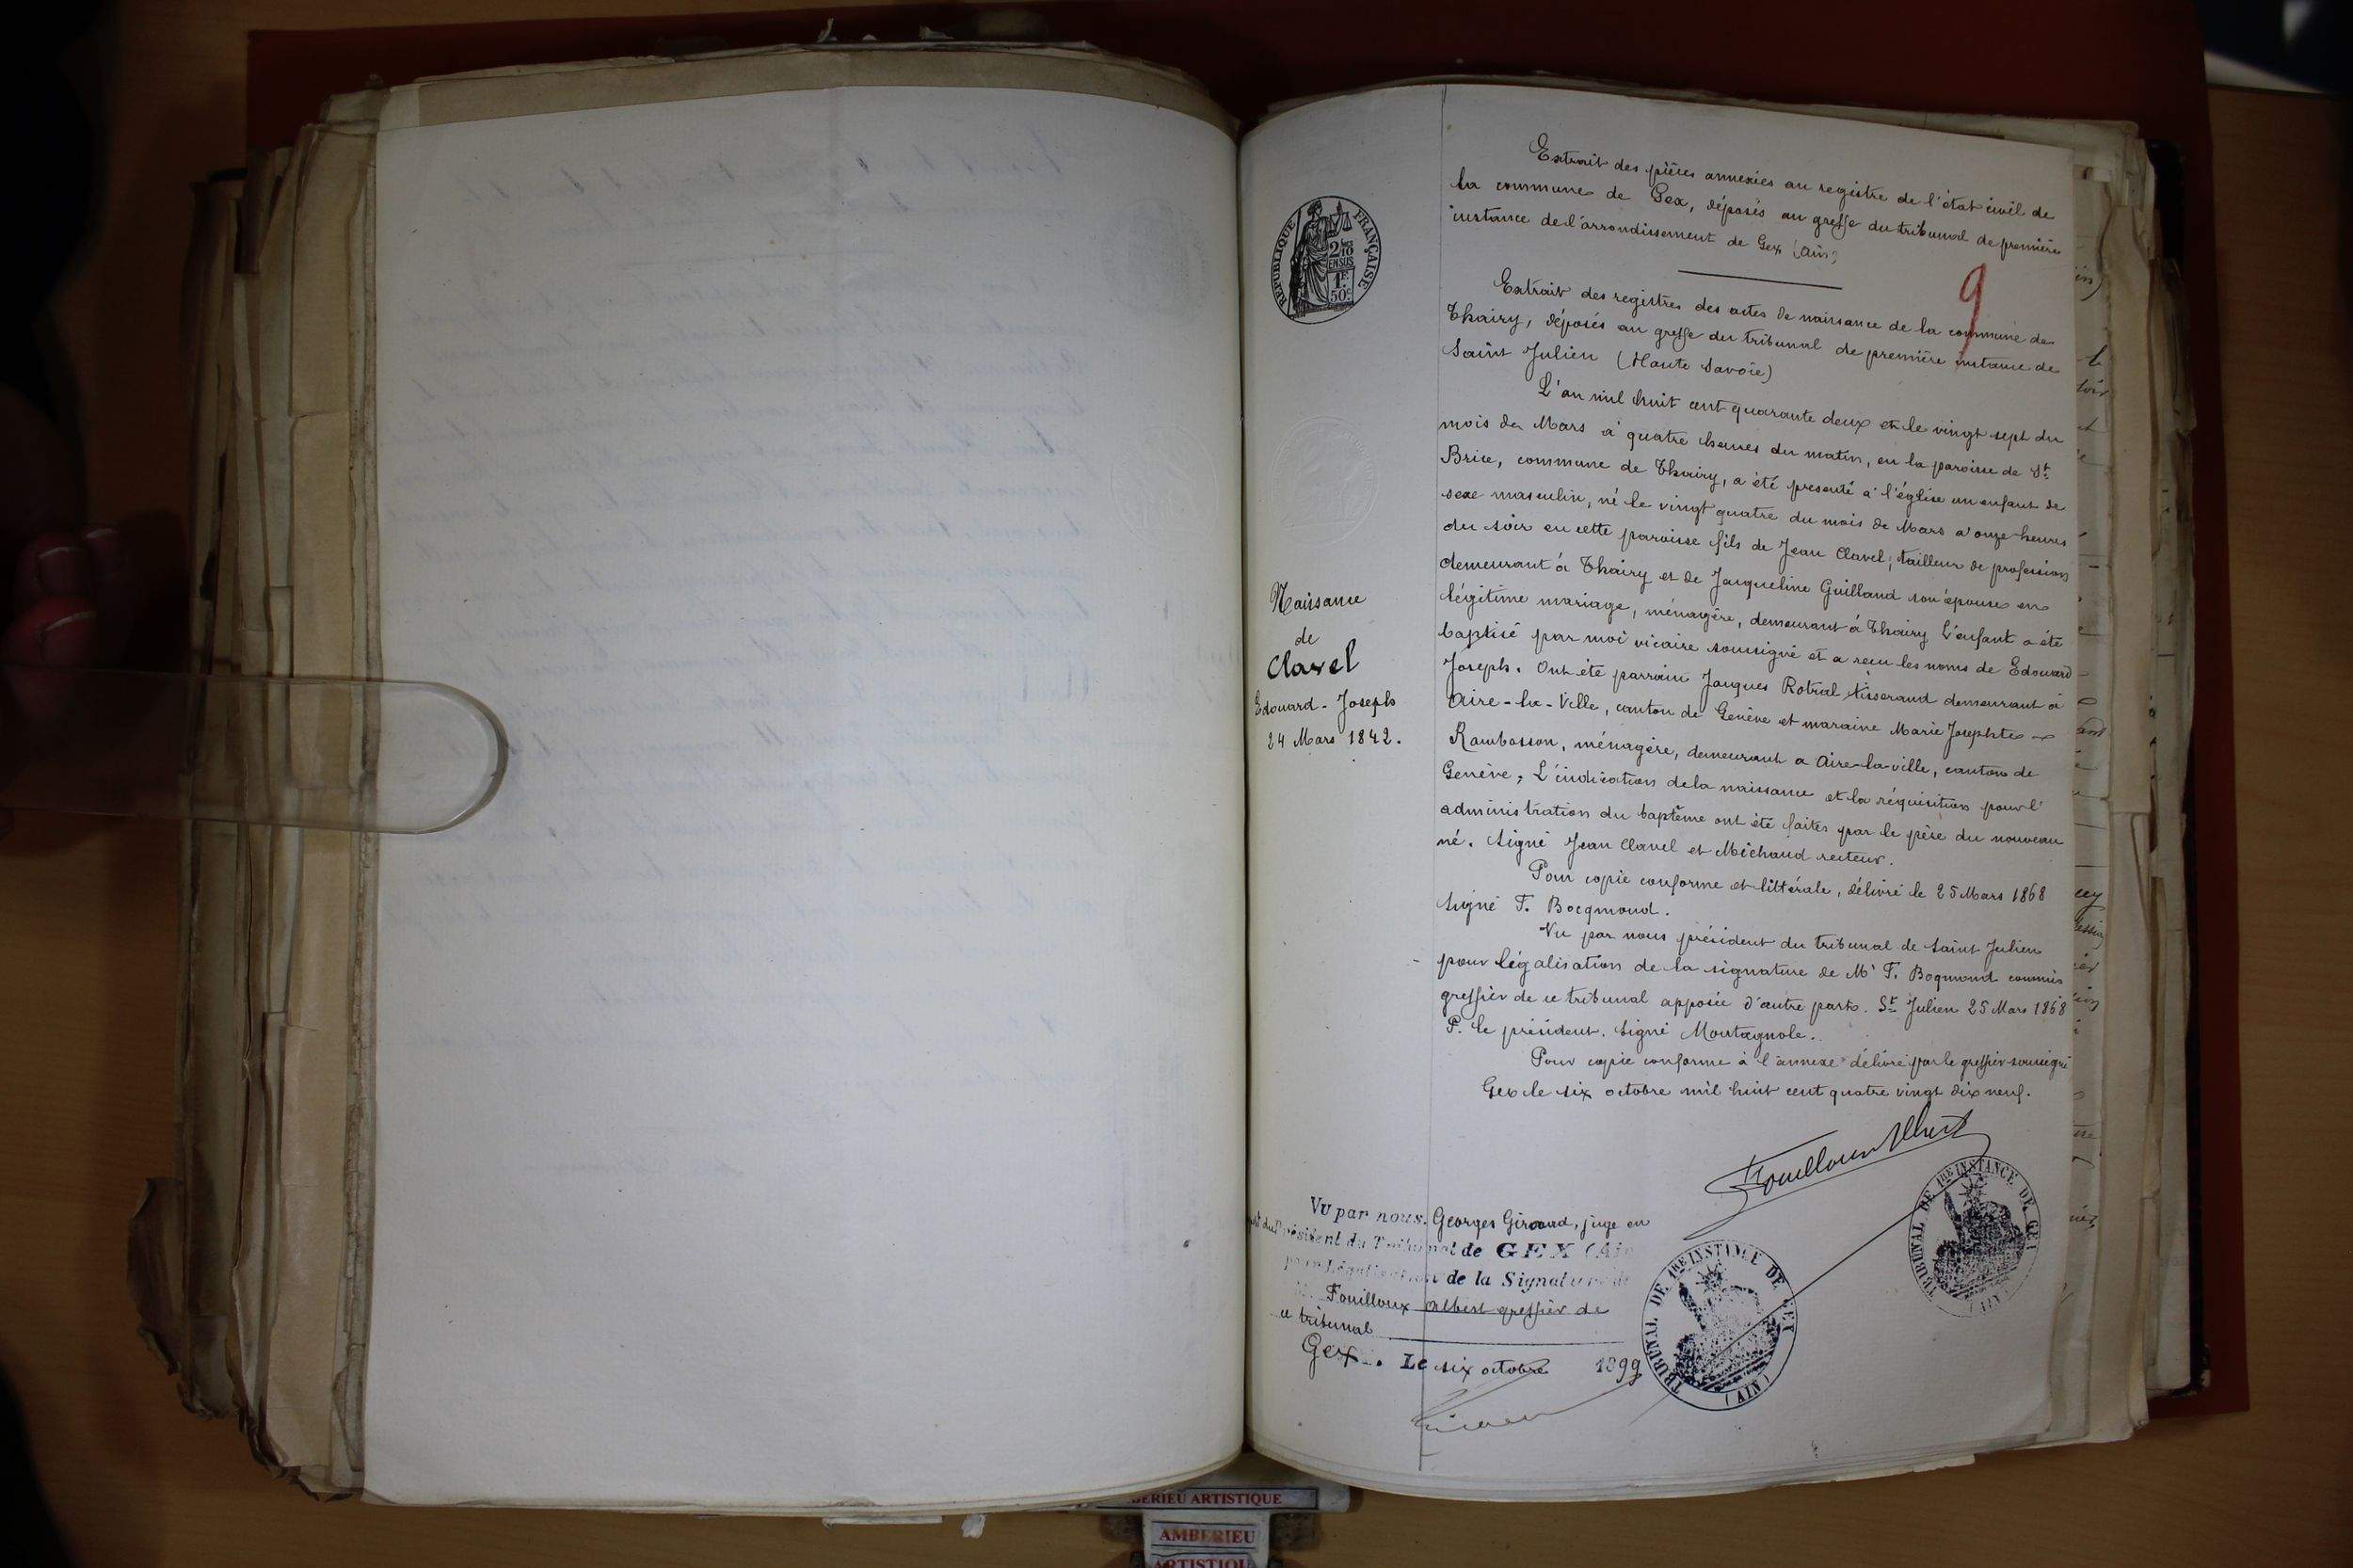 Extrait des pièces annexées au registre de l'état civil de
la commune de Gex, déposés au greffe du tribunal de première
instance de l'arrondissement de Gex (Ain)
9
Extrait des registres des actes de naissance de la commune de
Thairy, déposés au greffe du tribunal de première instance de
Saint Julien (Haute Savoie)
L'an mil huit cent quarante deux et le vingt sept du
mois de Mars à quatre heures du matin, en la paroisse de St
Brice, commune de Thairy, a été presenté à l'église un enfant de
sexe masculin, né le vingt quatre du mois de Mars a onze heures
du soir en cette paroisse fils de Jean Clavel, tailleur de profession
demeurant à Thairy et de Jacqueline Guilland son épouse en
légitime mariage, ménagère, demeurant à Thairy L'enfant a été
baptisé par moi vicaire soussigné et a recu les noms de Edouard
Joseph. Ont été parrain Jacques Rotral tisserand demeurant à
Aire-la-Ville, canton de Genève et maraine Marie Josephte
Rambosson, ménagère, demeurant a Aire-la-ville, canton de
Genève, L'indication de la naissance et la réquisition pour l'
administration du baptême ont été faites par le père du nouveau
né. Signé Jean Clavel et Michaud recteur.
Pour copie conforme et littérale, délivré le 25 Mars 1868
Signé F. Bocqmond.
Vu par nous président du tribunal de Saint Julien
pour légalisation de la signature de Mr F. Boqmond commis
greffier de ce tribunal apposée d'autre part. St Julien 25 Mars 1868
P. le président. Signé Montagnole.
Pour copie conforme à l'annexe délivré par le greffier soussigné
Gex le six octobre mil huit cent quatre vingt dix neuf.
RÉPUBLIQUE FRANÇAISE
2/10
EN SUS
1F.
50c
Naissance
de
Clavel
Edouard-Joseph
24 Mars 1842.
Fouilloux Albert
Vu par nous, Georges Giroud, juge en
du Président du Tribunal de GEX (Ain
pour Légalisation de la Signature de
Fouilloux Albert greffier de
ce tribunal
Gex. Le six octobre 1899
TRIBUNAL DE 1RE INSTANCE DE GEX
(AIN)
TRIBUNAL DE 1RE INSTANCE DE GEX
(AIN)
AMBERIEU ARTISTIQUE
AMBERIEU
ARTISTIQUE